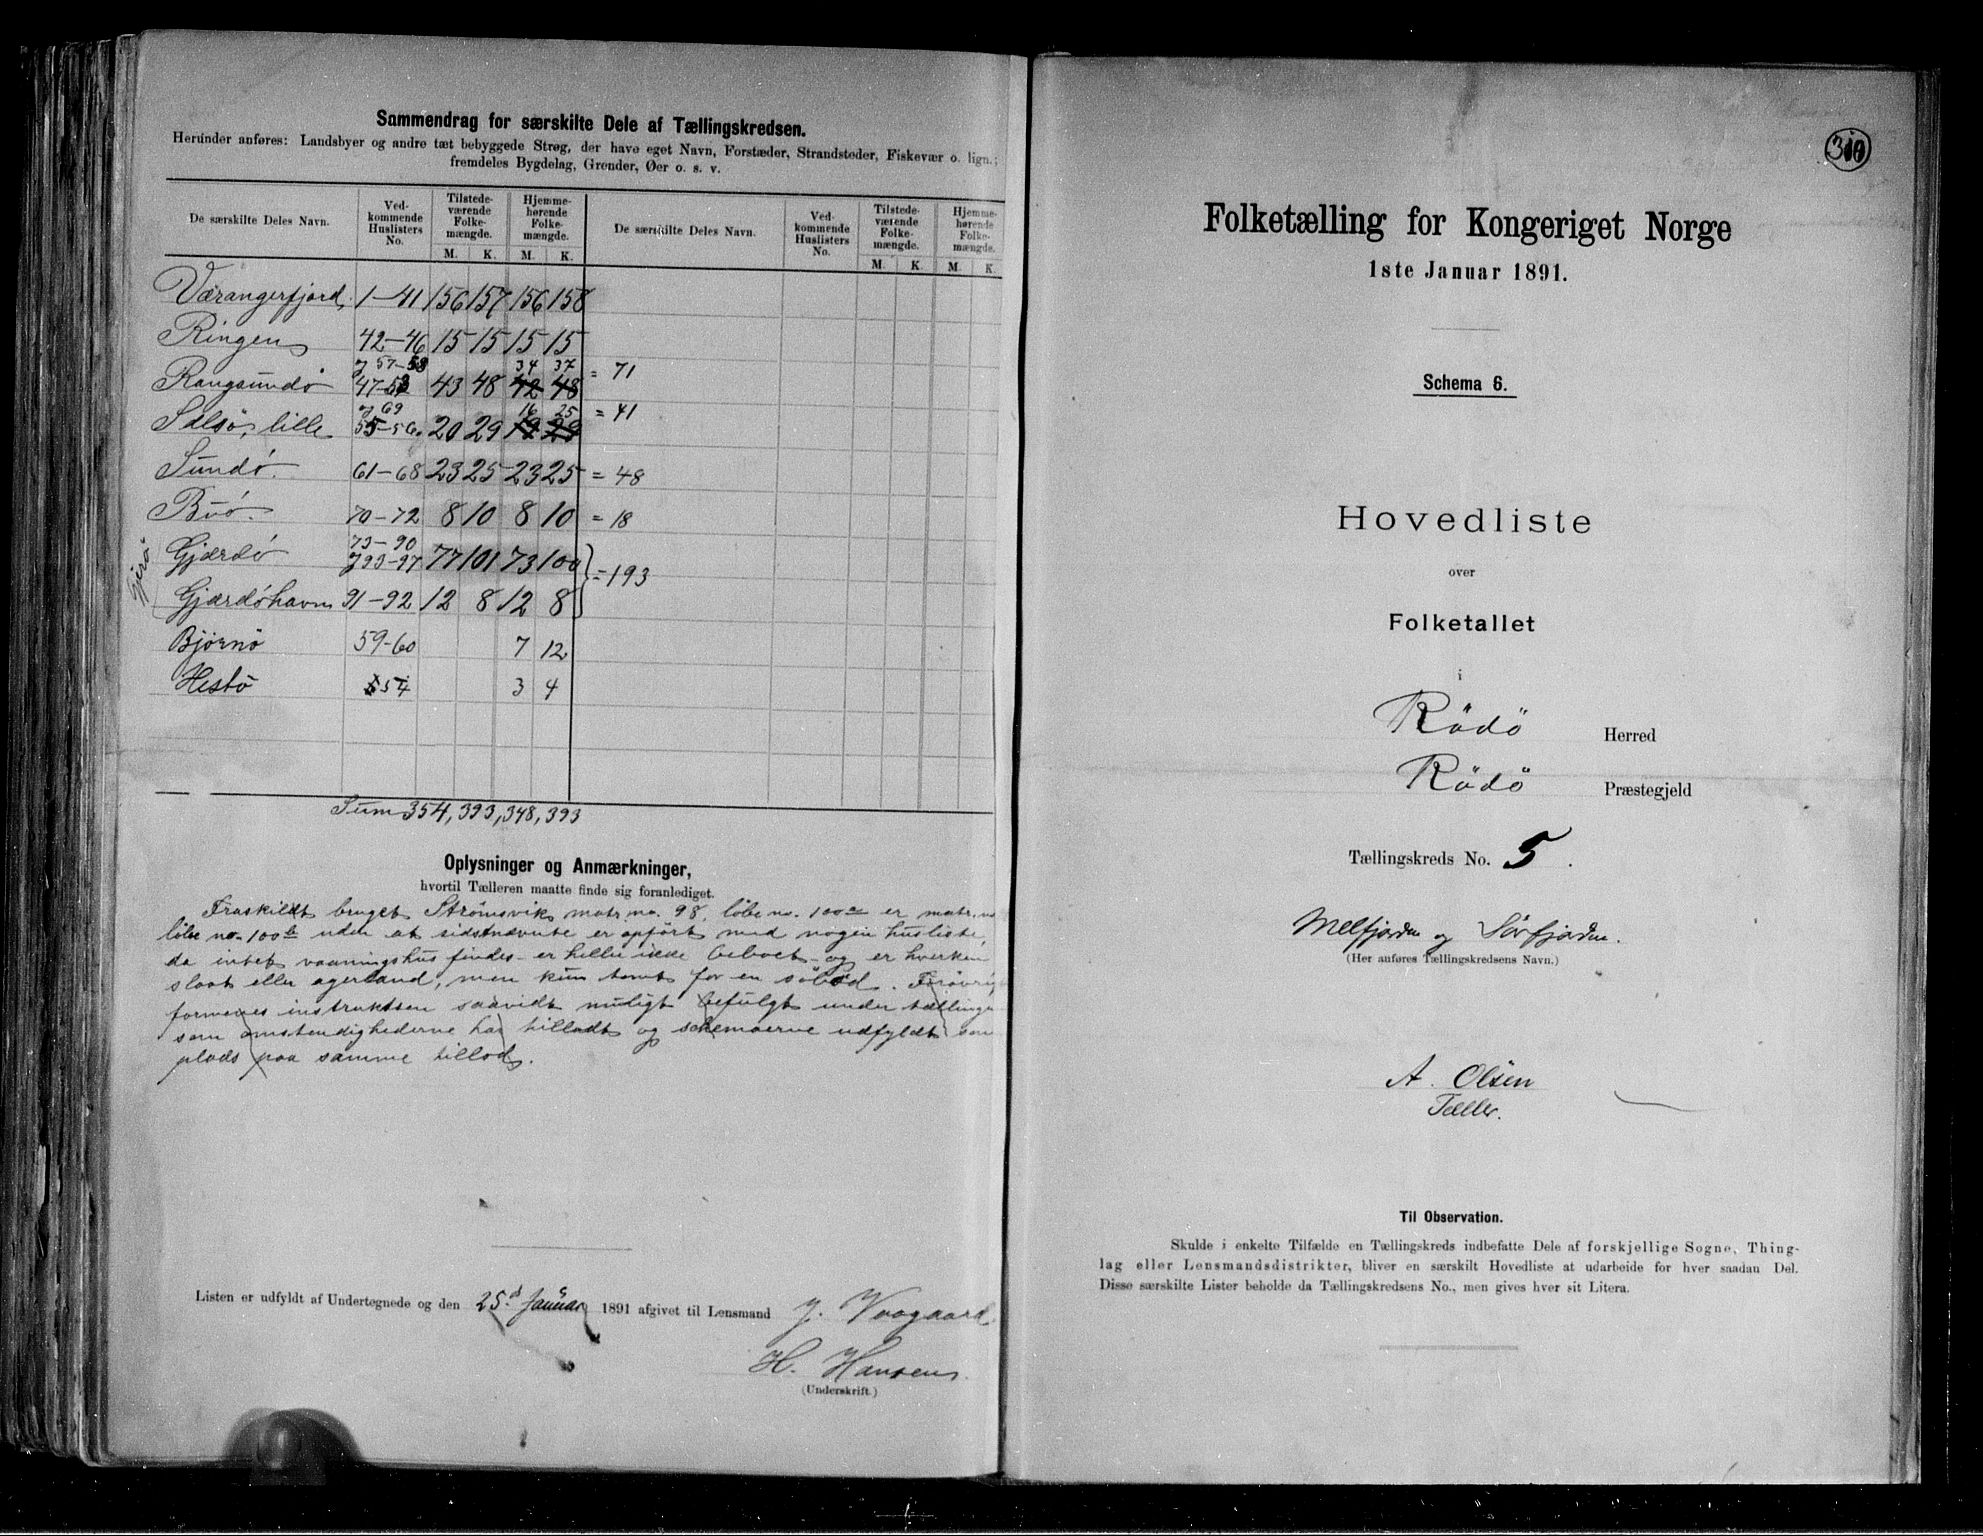 Sammendrag for særskilte Dele af Tællingskredsen.
Herunder anføres: Landsbyer og andre tæt bebyggede Strøg, der have eget Navn, Forstæder, Strandsteder, Fiskevær o. lign.;
fremdeles Bygdelag, Grender, Øer o. s. v.
De særskilte Deles Navn. Ved-kommende Huslisters No. Tilstede-værende Folke-mængde. Hjemme-hørende Folke-mængde. De særskilte Deles Navn. Ved-kommende Huslisters No. Tilstede-værende Folke-mængde. Hjemme-hørende Folke-mængde.
M. K. M. K. M. K. M. K.
Værangerfjord. 1-41 156 157 156 158
Ringen 42-46 15 15 15 15
57-58 34 37
Rangsundö 47-53 43 48 42 48 = 71
69 16 25
Selsö, lille 55-56. 20 29 19 29 = 41
Sundö. 61-68 23 25 23 25 = 48
Buö. 70-72 8 10 8 10 = 18
73-90
Gjerö
Gjærdö 93-97 77 101 73 100
= 193
Gjærdöhavn 91-92 12 8 12 8
Bjørnö 59-60 7 12
Hestö 54 3 4
Sum 354, 393, 348, 393
Oplysninger og Anmærkninger,
hvortil Tælleren maatte finde sig foranlediget.
Fraskildt bruget Strömsvik matr. no. 98, løbe no. 100a er matr. no
løbe no. 100b uden at sidstnævnte er opført med nogen husliste,
da intet vaaningshus findes - er heller ikke beboet - og er hverken
slaat eller agerland, men kun tomt for en
formenes instruksen saavidt muligt befulgt under
som omstendighederne har tilladt og schemaerne udfyldt som
plads paa samme tillod.
Listen er udfyldt af Undertegnede og den 25.d Januar 1891 afgivet til Lensmand J. Vaagaard
H. Hansen.
(Underskrift.)
310
Folketælling for Kongeriget Norge
1ste Januar 1891.
Schema 6.
Hovedliste
over
Folketallet
i
Rödö Herred
Rödö Præstegjeld
Tællingskreds No. 5.
Melfjorden og Sörfjorden.
(Her anføres Tællingskredsens Navn.)
A. Olsen
Tæller.
Til Observation.
Skulde i enkelte Tilfælde en Tællingskreds indbefatte Dele af forskjellige Sogne, Thing-
lag eller Lensmandsdistrikter, bliver en særskilt Hovedliste at udarbeide for hver saadan Del.
Disse særskilte Lister beholde da Tællingskredsens No., men gives hver sit Litera.